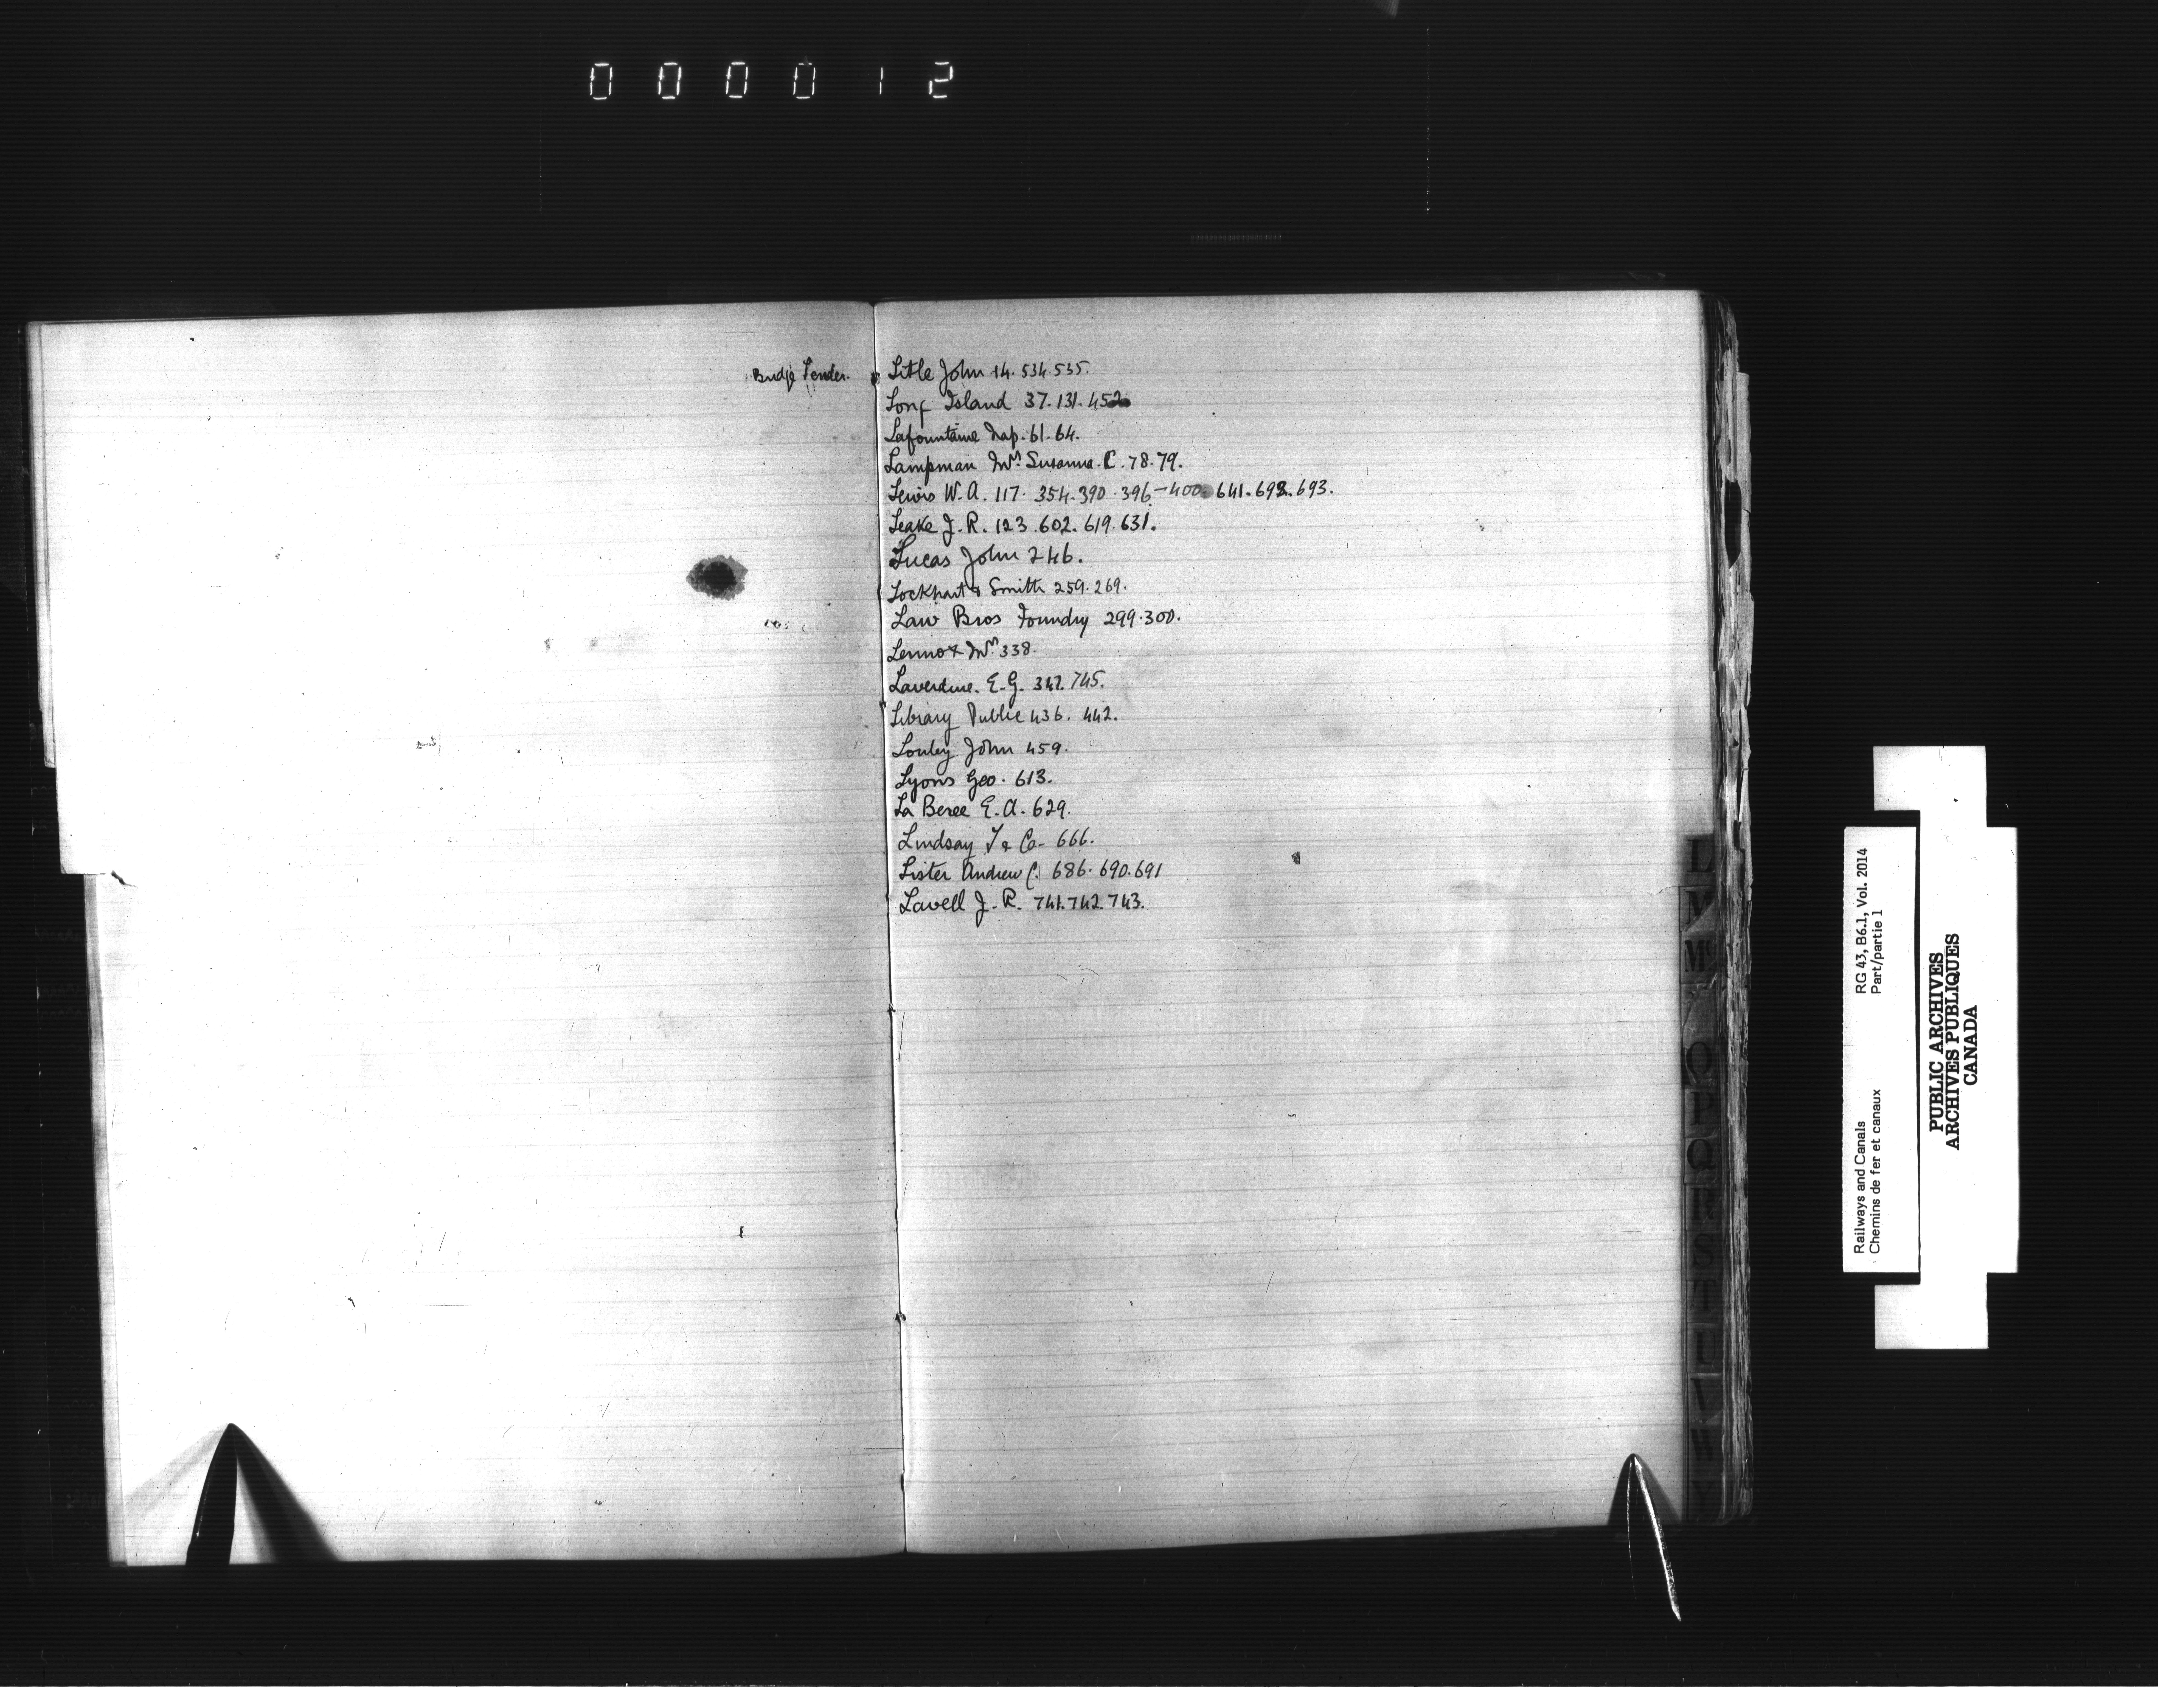 000012
Bridge Tender.
Little John 14. 534. 535.
Long Island 37. 131. 452
Lafountaine Nap. 61. 64.
Lampman Mrs. Susanna. C. 78. 79.
Lewis W. A. 117. 354. 390. 396-400. 641. 692. 693.
Leake J. R. 123. 602. 619. 631.
Lucas John 246.
Lockhart & Smith 259. 269.
Law Bros Foundry 299. 300.
Lennox 338.
Laverdure. E. G. 745.
Library Public 436. 442.
John 459.
Lyons Geo. 613.
La Beree E. A. 629.
Lindsay & Co- 666.
Lister Andrew C. 686. 690. 691
Lavell J. R. 741. 742. 743.
L
M
Mc
O
P
Q
R
S
T
U
V
W
Y
Railways and Canals RG 43, B6.1, Vol. 2014
Chemins de fer et canaux Part/partie 1
PUBLIC ARCHIVES
ARCHIVES PUBLIQUES
CANADA